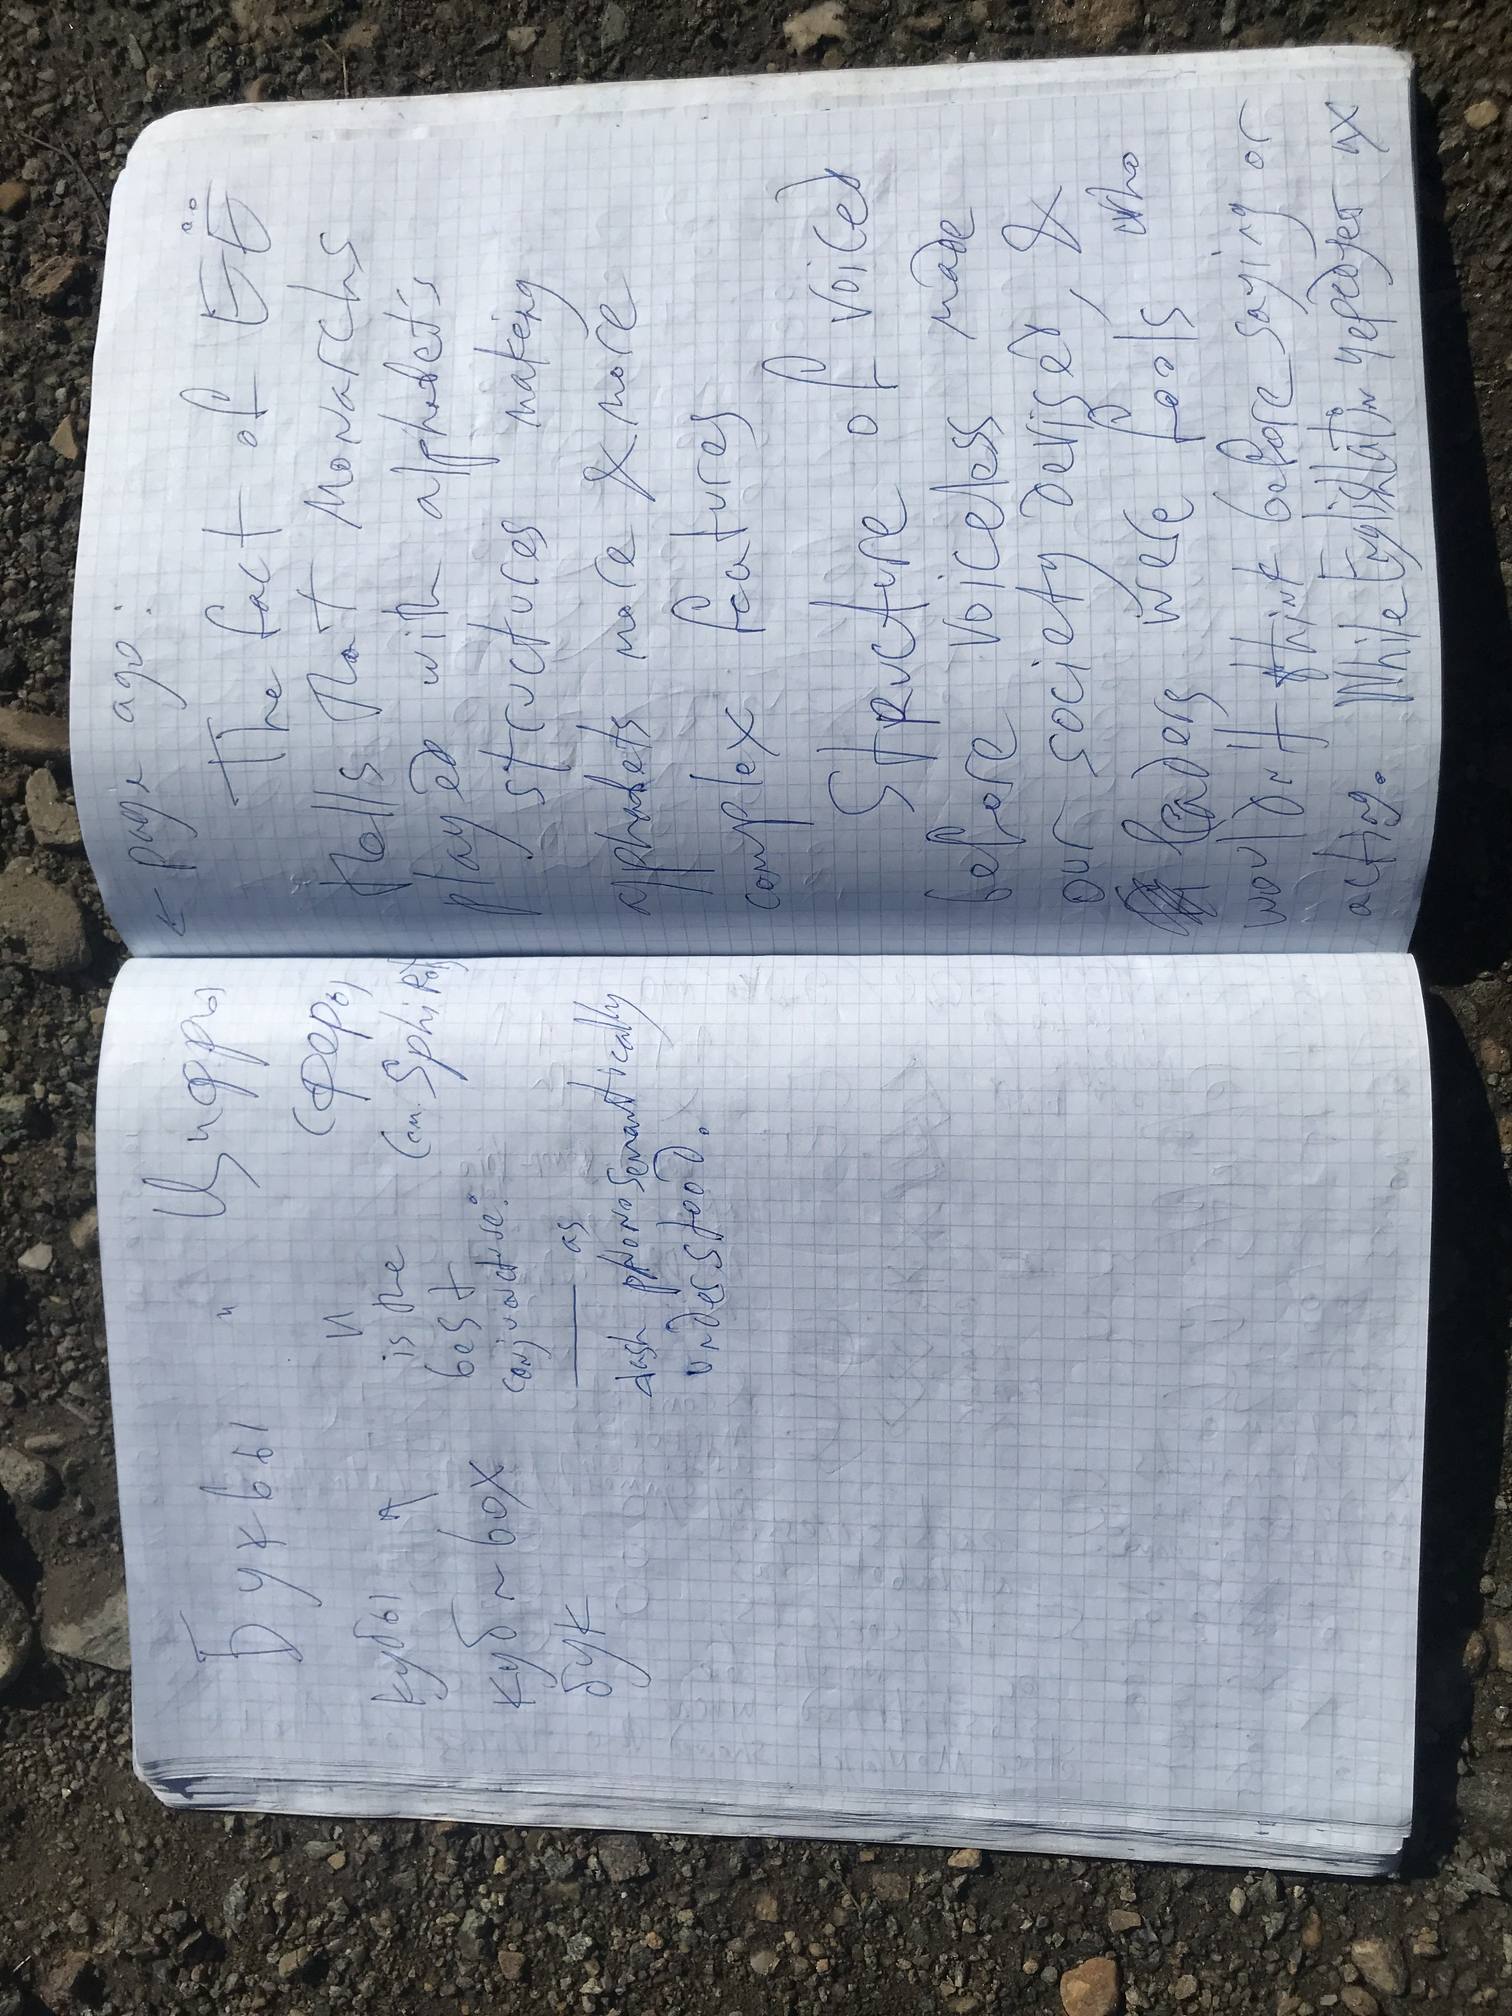 Буквы " Цифры
кубы и сферы
is the (см. Sphirot)
куб ~ box best
бук conjunctive:
— as
dash phonosemantically
understood.
← page ago:
The fact of БӖ
tells that monarchs
played with alphabet's
structures making
alphabets more & more
complex features
Structure of voiced
before voiceless made
our society devised, &
leaders were fools, who
wouldn't think before saying or
acting. While English Latin чередует их